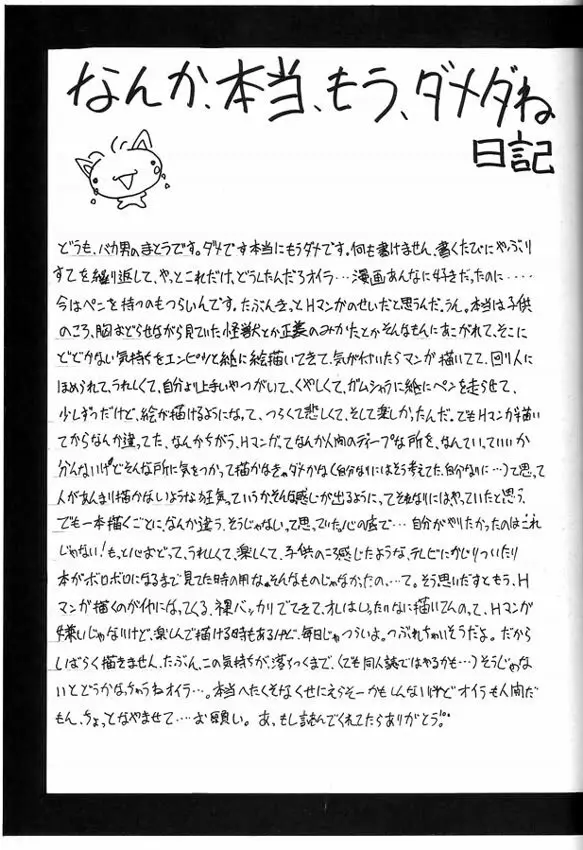 なんか、本当、もう、ダメダね
日記
どうも、バカ男のまとうです。ダメです本当にもうダメです。何も書けません、書くたびにやぶり
すてを繰り返して、やっとこれだけ、どうしたんだろオイラ…漫画あんなに好きだったのに‥‥
今はペンを持つのもつらいんです。たぶんきっとHマンガのせいだと思うんだ。うん。本当は子供
のころ、胸おどらせながら見ていた怪獣とか正義のみかたとかそんなもんにあこがれて、そこに
とどかない気持ちをエンピツと紙に絵描いてきて、気が付いたらマンガ描いてて、回り人に
ほめられて、うれしくて、自分より上手いやつがいて、くやしくて、ガムシャラに紙にペンを走らせて、
少しずつだけど、絵が描けるようになって、つらくて悲しくて、そして楽しかったんだ。でもHマンガ描い
てからなんか違ってた、なんかちがう、Hマンガってなんか人間のディープな所を、なんていっていいか
分んないけどそんな所に気をつかって描かなきゃダメかな(自分なりにはそう考えてた、自分なりに…)て思って
人があんまり描かないような狂気っていうか、そんな感じが出るようにってそれなりにはやっていたと思う、
でも一本描くごとに、なんか違う、そうじゃないって思っていた。心の底で…自分がやりたかったのはこれ
じゃない!もっと心おどって、うれしくて、楽しくて、子供のころ感じたような、テレビにかじりついたり
本がボロボロになるまで見てた時の用な。そんなものじゃなかったの…て。そう思いだすともう、H
マンガ描くのがイヤになってくる、裸バッカリでてきて、オレはしったいなに描いてんのって、Hマンガ
嫌いじゃないけど、楽しんで描ける時もあるけど、毎日じゃつらいよ。つぶれちゃいそうだよ。だから
しばらく描きません、たぶん、この気持ちが、落ちつくまで、(でも同人誌ではやるかも…)そうじゃな
いとどうかなっちゃうねオイラ…。本当へたくそなくせにえらそーかもしんないけどオイラも人間だ
もん、ちょっとなやませて…お願い。あ、もし読んでくれてたらありがとう!。